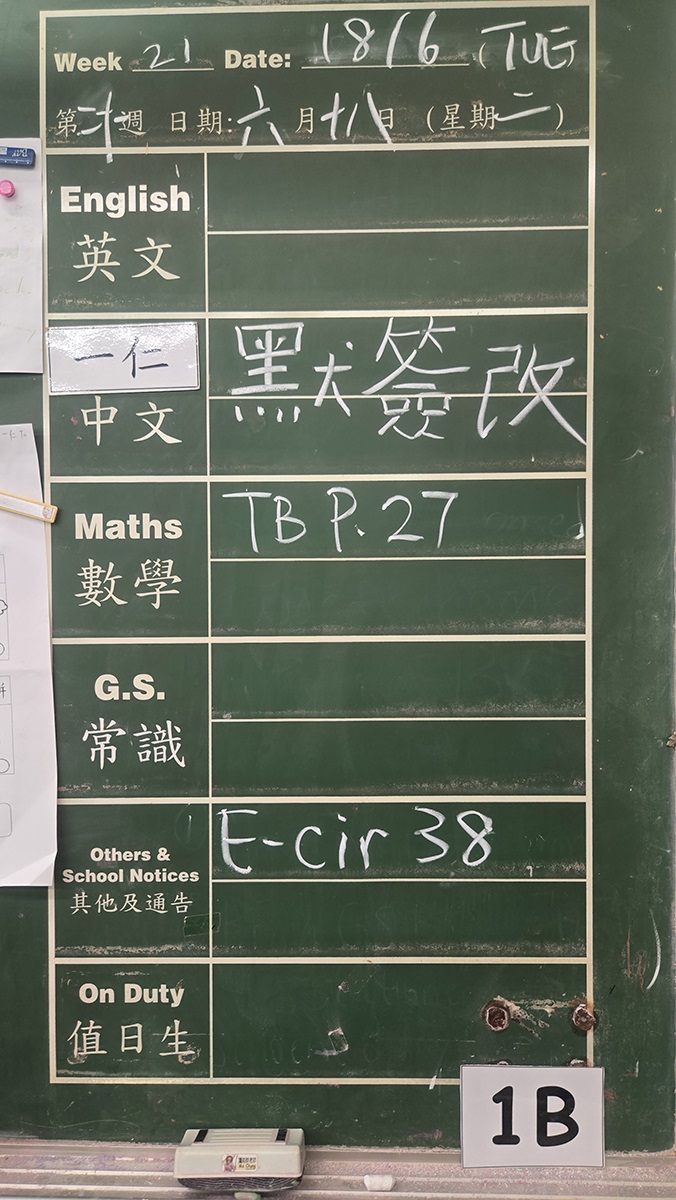 Week 21 Date: 18/6 (TUE)
第廿週 日期: 六月十八日 (星期二)
English
英文
一仁
中文
默簽改
Maths
數學
TB P. 27
G.S.
常識
Others &
School Notices
其他及通告
E-cir 38
On Duty
值日生
1B